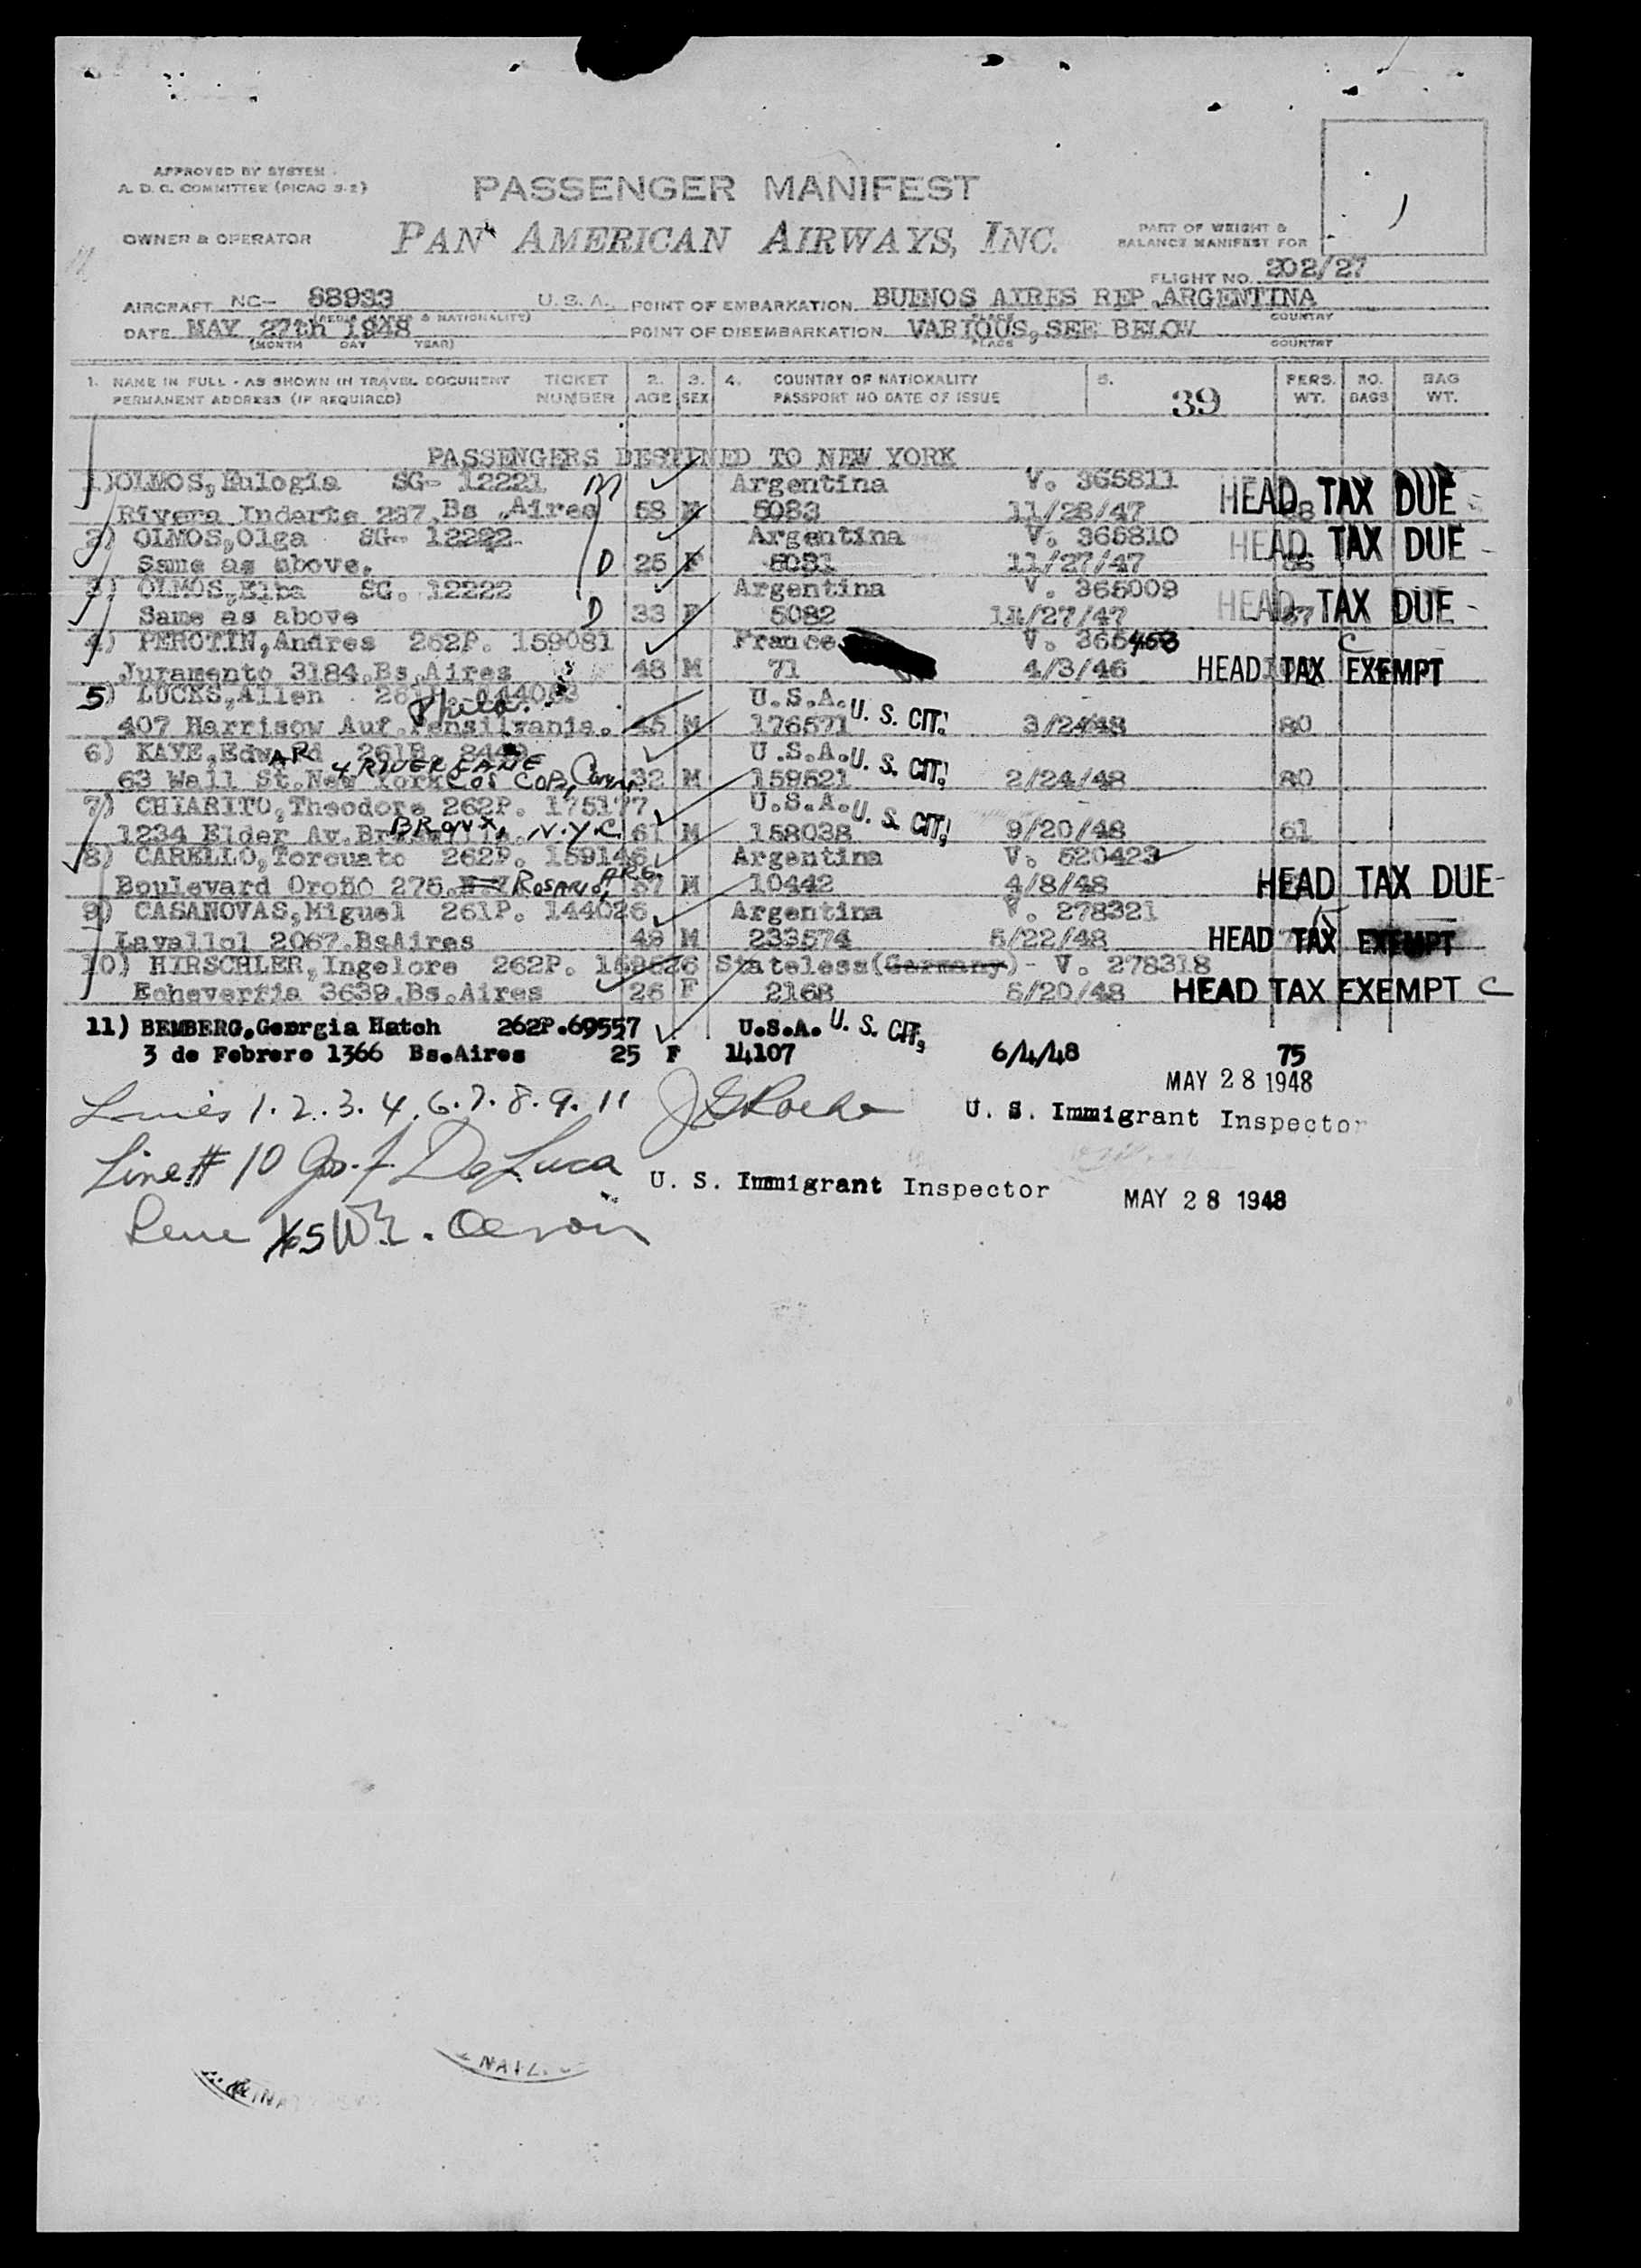 APPROVED BY SYSTEM
A. D. C. COMMITTEE (PICAO S-2)
PASSENGER MANIFEST
OWNER & OPERATOR
PAN AMERICAN AIRWAYS, INC.
PART OF WEIGHT &
BALANCE MANIFEST FOR
FLIGHT NO. 202/27
AIRCRAFT NC- 88933 U. S. A. POINT OF EMBARKATION BUENOS AIRES REP.ARGENTINA
& NATIONALITY) PLACE COUNTRY
DATE MAY 27th 1948 POINT OF DISEMBARKATION VARIOUS, SEE BELOW
(MONTH DAY YEAR) PLACE COUNTRY
1. NAME IN FULL - AS SHOWN IN TRAVEL DOCUMENT TICKET 2. 3. 4. COUNTRY OF NATIONALITY 5. PERS. NO. BAG
PERMANENT ADDRESS (IF REQUIRED) NUMBER AGE SEX PASSPORT NO DATE OF ISSUE 39 WT. BAGS WT.
PASSENGERS DESTINED TO NEW YORK
1)OLMOS,Eulogia SG- 12221 M Argentina V. 365811
Rivera Indarte 237.Bs .Aires 58 5083 11/28/47 HEAD TAX DUE
2) OLMOS,Olga SG- 12222 Argentina V. 365810
Same as above. D 25 F 5081 11/27/47 HEAD TAX DUE
3) OLMOS,Elba SG. 12222 Argentina V. 365009
Same as above D 33 F 5082 11/27/47 HEAD TAX DUE
4) PEROTIN,Andres 262P. 159081 France V. 365468 C
Juramento 3184.Bs.Aires 48 M 71 4/3/46 HEAD TAX EXEMPT
5) LUCKS,Allen U.S.A. U. S. CIT.
Phila.
407 Harrisow Auf.Pensilvania. 45 M 176571 3/24/48 80
6) KAYE,Edward 261B. U.S.A. U. S. CIT.
4 RIVER LANE
63 Wall St.New York COS COB, Conn. 32 M 159521 2/24/48 80
7) CHIARITO,Theodore 262P. 175177 U.S.A. U. S. CIT.
1234 Elder Av. BRONX, N.Y.C. 61 M 158038 9/20/48 61
8) CARELLO,Torcuato 262P. 159146 Argentina V. 520423
Boulevard Oroño 275. ROSARIO, ARG. 57 M 10442 4/8/48 HEAD TAX DUE
9) CASANOVAS,Miguel 261P. 144026 Argentina V. 278321
Lavallol 2067.BsAires 49 M 233574 5/22/48 HEAD TAX EXEMPT
10) HIRSCHLER,Ingelore 262P. Stateless(Germany)- V. 278318
Echeverria 3639.Bs.Aires 26 F 2168 5/20/48 HEAD TAX EXEMPT C
11) BEMBERG,Georgia Hatch 262P.69557 U.S.A. U. S. CIT.
3 de Febrero 1366 Bs.Aires 25 F 14107 6/4/48 75
MAY 28 1948
Lines 1. 2. 3. 4. 6. 7. 8. 9. 11 U. S. Immigrant Inspector
Line # 10 Jos. F. De Luca U. S. Immigrant Inspector MAY 28 1948
Line 5